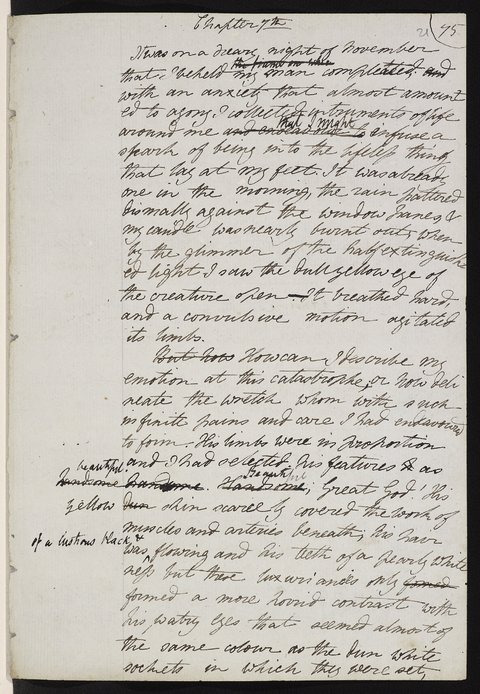 Chapter 7th
21
95
It was on a dreary night of November
the frame on whic
that I beheld my man compleated, and
with an anxiety that almost amount
ed to agony, I collected instruments of life
that I might
around me and endeavour to infuse a
spark of being into the lifeless thing
that lay at my feet. It was already
one in the morning, the rain pattered
dismally against the window panes, &
my candle was nearly burnt out, when
by the glimmer of the half extinguish
ed light I saw the dull yellow eye of
the creature open — It breathed hard,
and a convulsive motion agitated
its limbs.
But how How can I describe my
emotion at this catastrophe, or how deli
neate the wretch whom with such
infinite pains and care I had endeavoured
to form. His limbs were in proportion
beautiful
and I had selected his features as
beautiful
handsome handsome. Handsome, Great God. His
yellow dun skin scarcely covered the work of
muscles and arteries beneath; his hair
of a lustrous black &
was flowing and his teeth of a pearly white
ness but these luxuriances only formed
formed a more horrid contrast with
his watry eyes that seemed almost of
the same colour as the dun white
sockets in which they were set,